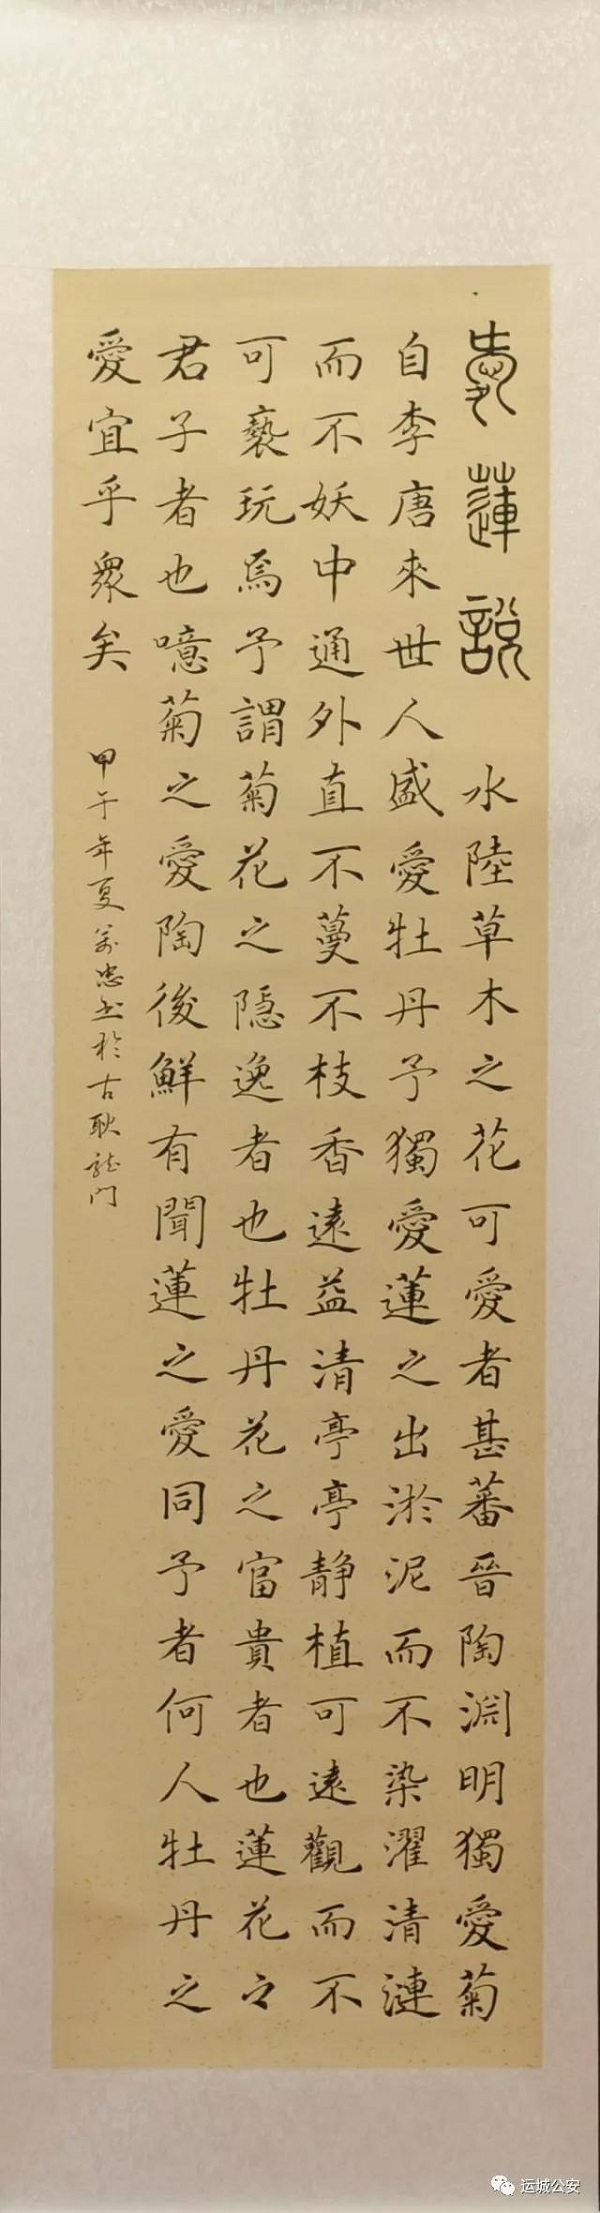 愛蓮說
水陸草木之花可愛者甚蕃晉陶淵明獨愛菊
自李唐來世人盛愛牡丹予獨愛蓮之出淤泥而不染濯清漣
而不妖中通外直不蔓不枝香遠益清亭亭静植可遠觀而不
可褻玩焉予謂菊花之隱逸者也牡丹花之富貴者也蓮花々
君子者也噫菊之愛陶後鮮有聞蓮之愛同予者何人牡丹之
愛宜乎眾矣
甲午年夏萬忠书於古耿龍门
运城公安